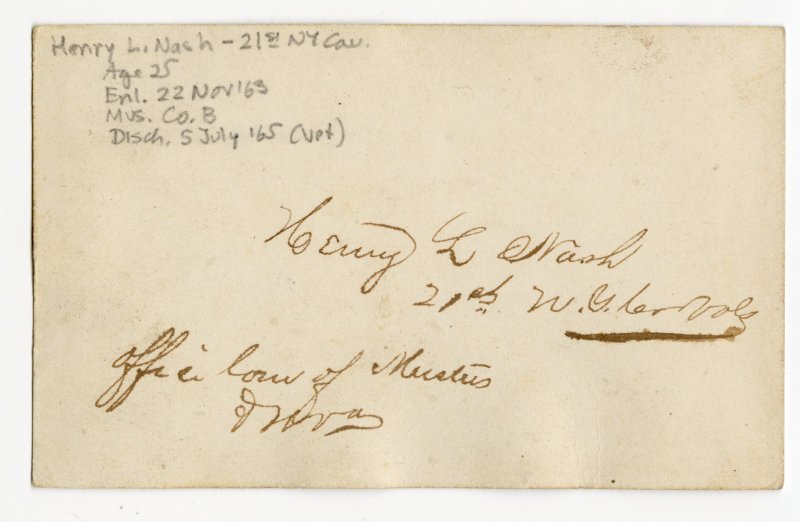 Henry L. Nash – 21st NY Cav.
Age 25
Enl. 22 Nov '63
Mus. Co. B
Disch. 5 July '65 (Vet)
Henry L Nash
21st N.Y. Vols
Office of Musters